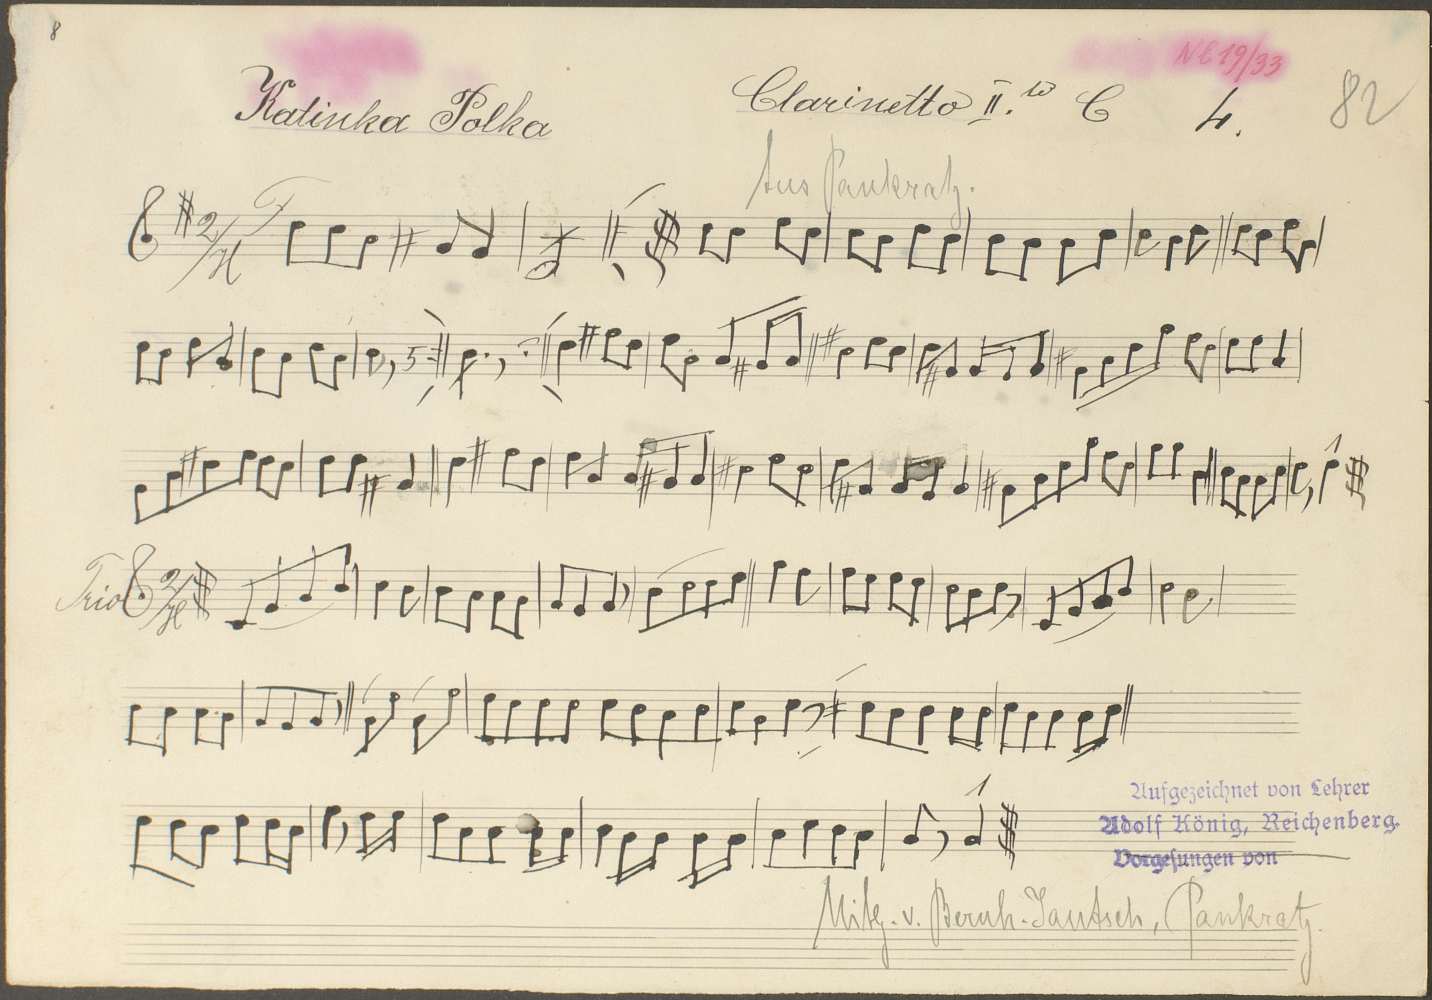 8
NE 19/33
Katinka Polka
Clarinetto II.do C
4.
82
Aus Pankratz.
2/4
Trio 2/4
Aufgezeichnet von Lehrer
Adolf König, Reichenberg.
Vorgesungen von
Mitg. v. Bernh. Jantsch, Pankratz.